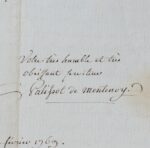 Votre très humble et très
obéissant serviteur
Palissot de Montenoy.
février 1769.